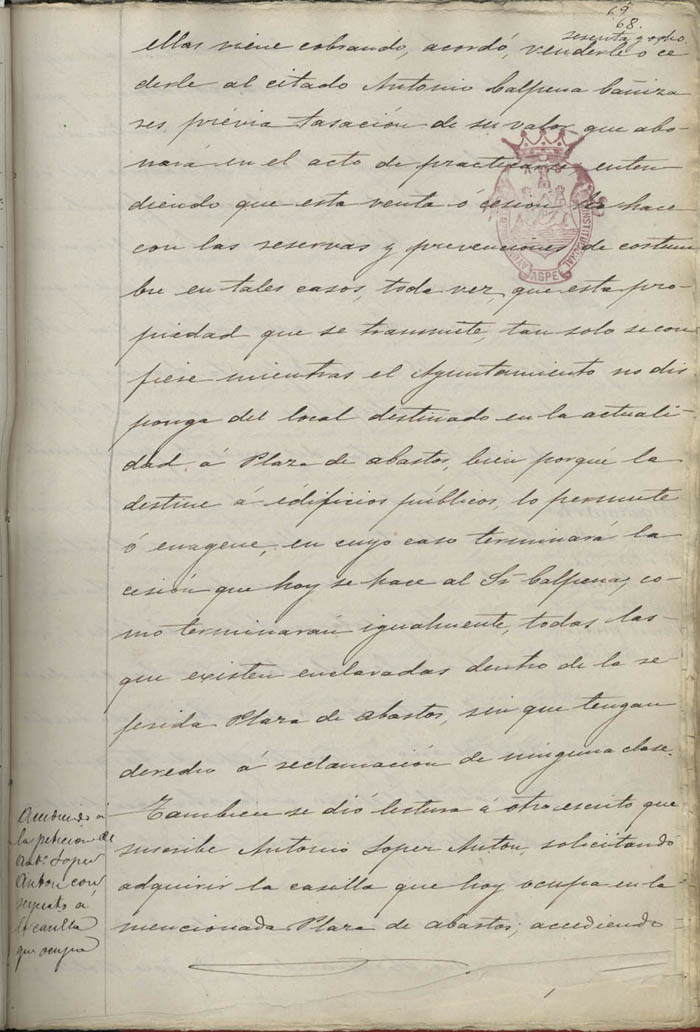 69
68.
sesenta y ocho
ellas viene cobrando, acordó, venderle o ce
derle al citado Antonio Calpena Cañiza
res, prévia tasación de su valor que abo
nará en el acto de practicarse, enten
diendo que esta venta ó cesión la hace
con las reservas y prevenciones de costum
bre en tales casos, toda vez, que esta pro
piedad que se transmite, tan solo se con
fiere mientras el Ayuntamiento no dis
ponga del local destinado en la actuali
dad, á Plaza de abastos, bien porqué la
destine á edificios públicos, lo permute
ó enagene, en cuyo caso terminará la
cesión que hoy se hace al Sr Calpena, co
mo terminarán igualmente, todas las
que existen enclavadas dentro de la re
ferida Plaza de abastos, sin que tengan
derecho á reclamación de ninguna clase.
Tambien se dió lectura á otro escrito que
suscribe Antonio Lopez Anton, solicitando
adquirir la casilla que hoy ocupa en la
mencionada Plaza de abastos; accediendo
la peticion de
Anto. Lopez
Anton con
respecto a
la casilla
que ocupa
CONSTITUCIONAL
ASPE